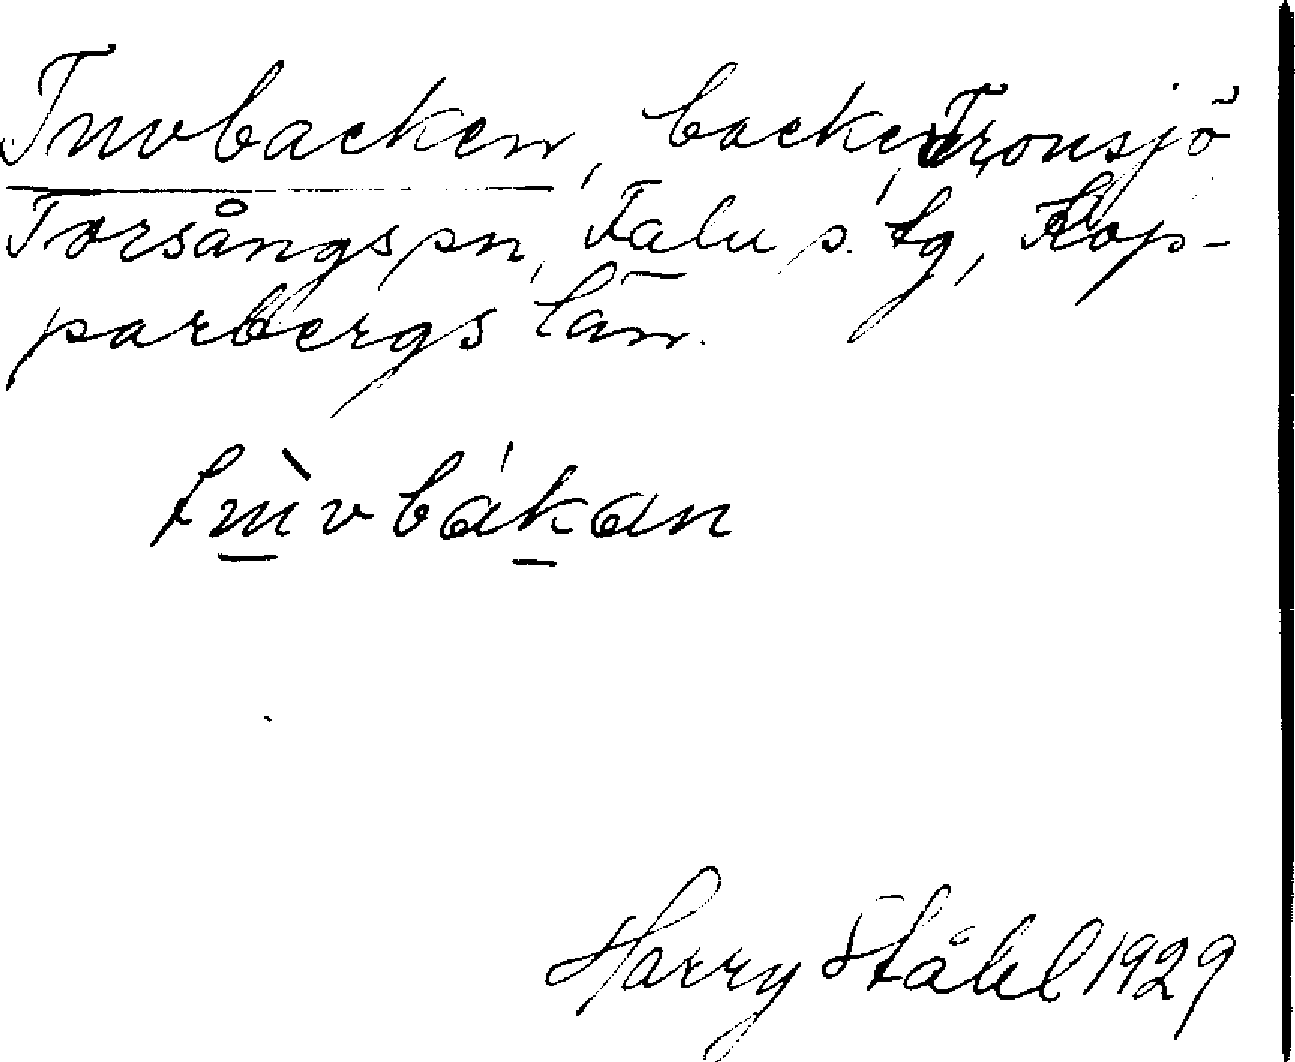 Tuvbacken, backe, Tronsjö
Torsångs sn, Falu s. tg, Kop-
parbergs län.
tùvbákan
Harry Ståhl 1929